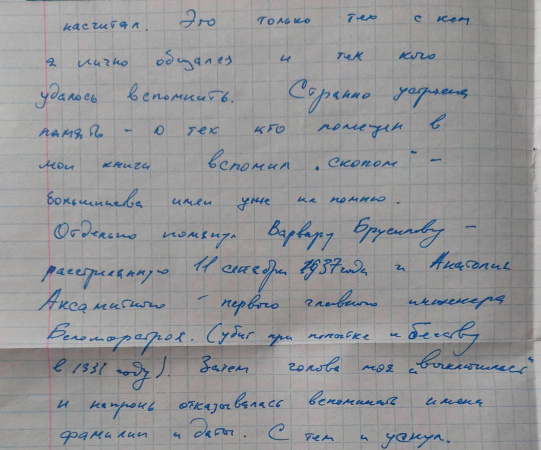 насчитал. Это только тех с кем
я лично общался и тех кого
удалось вспомнить. Странно устроена
память - о тех кто помещен в
мои книги вспомнил "скопом" -
большинства имен уже не помню.
Отдельно помяну Варвару Брусилову -
расстрелянную 11 сентября 1937 года и Анатолия
Аксамитного - первого главного инженера
Беломорстроя. (убит при попытке к бегству
в 1931 году). Затем голова моя "выключилась"
и напрочь отказывалась вспоминать имена
фамилии и даты. С тем и уснул.